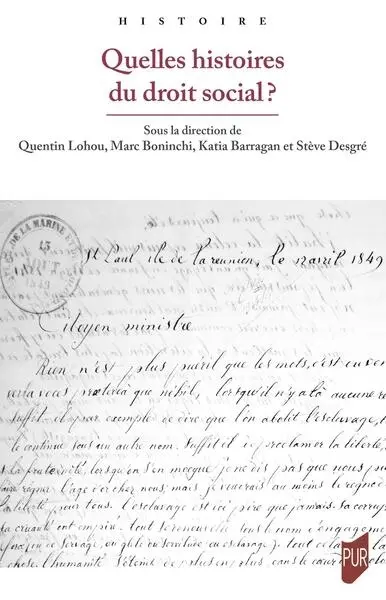 HISTOIRE
Quelles histoires
du droit social ?
Sous la direction de
Quentin Lohou, Marc Boninchi, Katia Barragan et Stève Desgré
DE LA MARINE ET
13
AOUT
1849
St Paul ile de la reunion, le 12 avril 1849
Citoyen ministre
Rien n'est plus puéril que les mots, c'est
que nihil, lorsqu'il n'y a là aucune
suffit, par exemple de dire que l'on abolit l'esclavage,
le continue sous un autre nom. Suffit il de proclamer la liberté,
la fraternité, lorsqu'on s'en moque je ne dis pas que nous
faire régner l'age d'or chez nous; mais je voudrais au moins le regne
la liberté pour tous. l'esclavage est ici pire que jamais. sa
sa cruauté ont empiré. tout se renouvelle sous le nom d'engagement
de servage, ou glèbe ou servitude ou esclavage). tout cela
chose. l'humanité s'éteint de plus en plus, dans le cœur
PUR